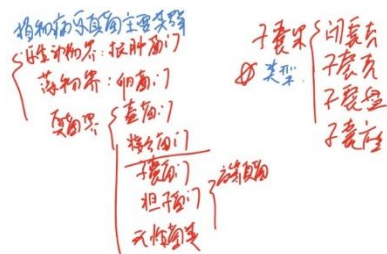 植物病原真菌主要类群
原生动物界：根肿菌门
藻物界：卵菌门
真菌界
壶菌门
接合菌门
子囊菌门
担子菌门
高等真菌
无性菌类
子囊果
类型
闭囊壳
子囊壳
子囊盘
子囊座